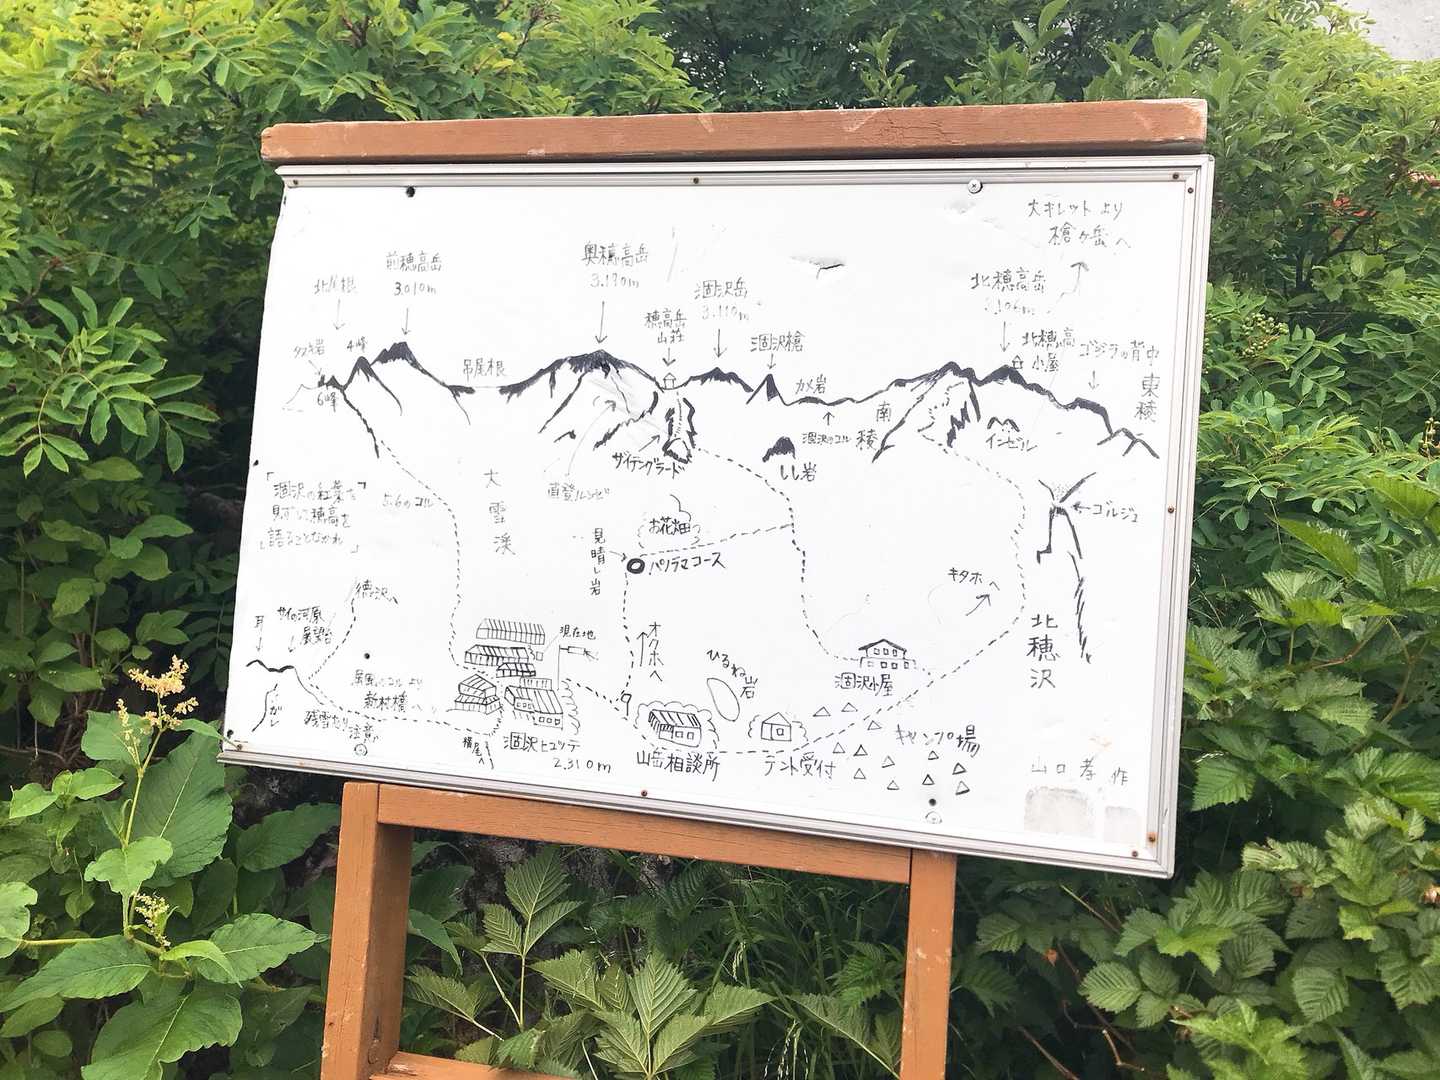 大キレットより
槍ヶ岳へ
前穂高岳
3.010m
北尾根
奥穂高岳
3.190m
涸沢岳
3.110m
北穂高岳
3.106m
穂高岳
山荘
涸沢槍
北穂高
小屋
ゴジラの背中
東稜
4峰
6峰
吊尾根
カメ岩
涸沢のコル
南稜
インゼル
ザイテングラード
しし岩
直登ルンゼ
大雪渓
5.6のコル
「涸沢の紅葉を
見ずして穂高を
語ることなかれ」
お花畑
見晴し岩
パノラマコース
ゴルジュ
キタホへ
北穂沢
徳沢へ
耳
サイの河原
展望台
現在地
オクホへ
ひるね岩
涸沢小屋
より
新村橋へ
残雪あり
注意
横尾へ
涸沢ヒュッテ
2.310m
山岳相談所
テント受付
キャンプ場
山口孝作